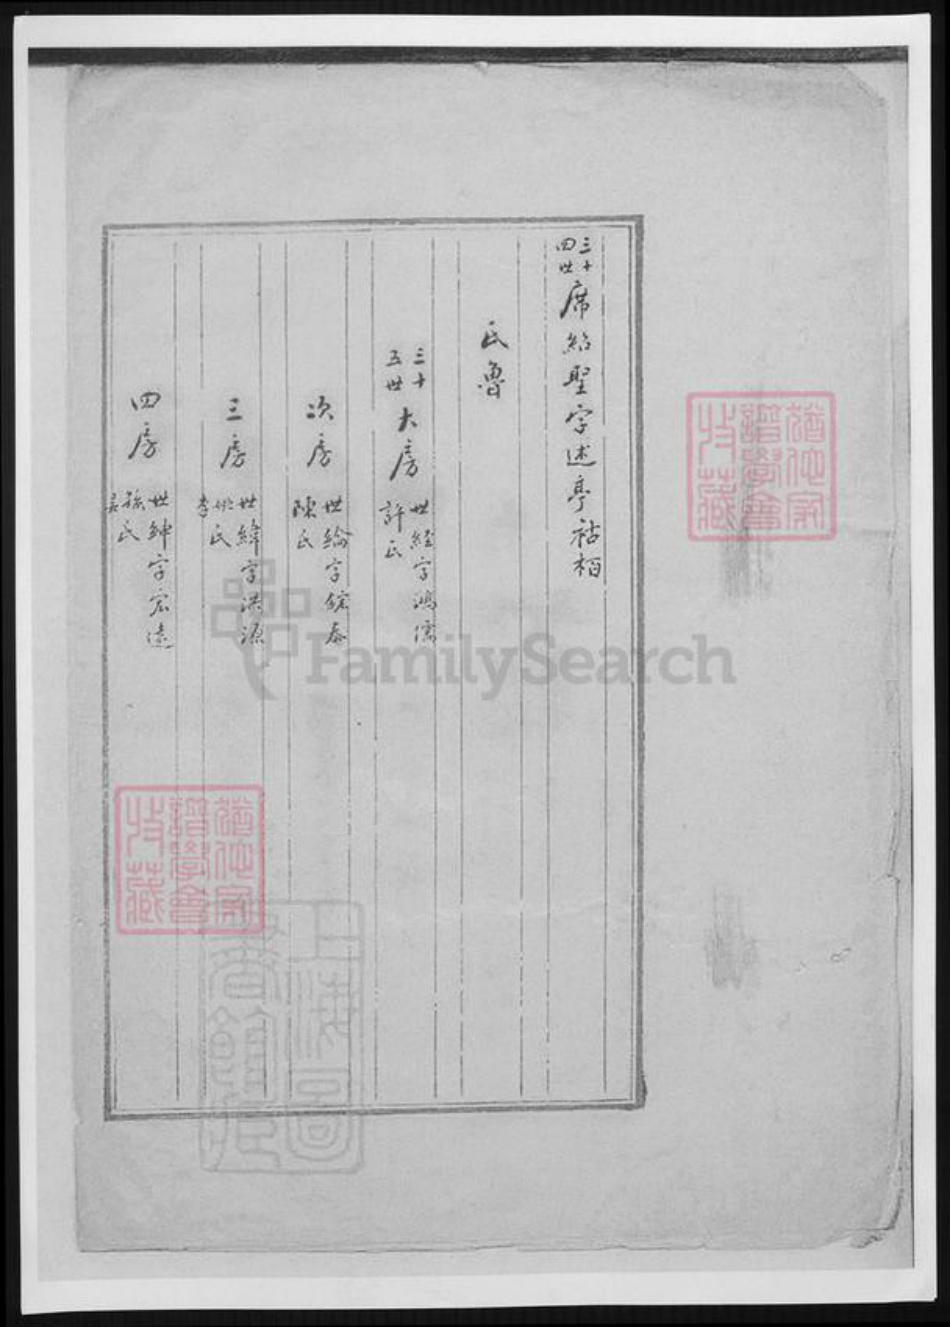 三十四世 席紹聖字述亭祜栢
氏魯
三十五世 大房 世經字鴻儒 許氏
次房 世綸字 泰 陳氏
三房 世緯字洪源 姚氏 李
四房 世紳字宏遠 孫氏 吴
FamilySearch
猶他家譜學會收藏
猶他家譜學會收藏
上海圖書館藏